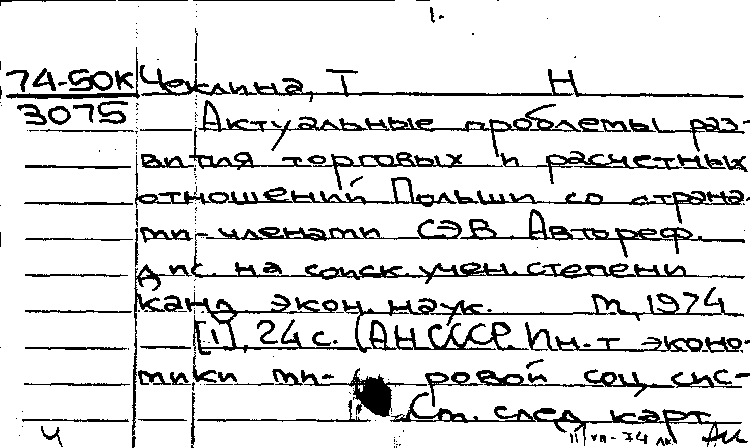 1.
74-50К Чеклина, Т Н
3075 Актуальные проблемы раз-
вития торговых и расчетных
отношений Польши со страна
ми-членами СЭВ. Автореф.
дис. на соиск. учен. степени
канд экон. наук. М, 1974
[1], 24 с. (АН СССР. Ин-т эконо-
мики ми- ровой соц. сис-
См. след карт
Ч